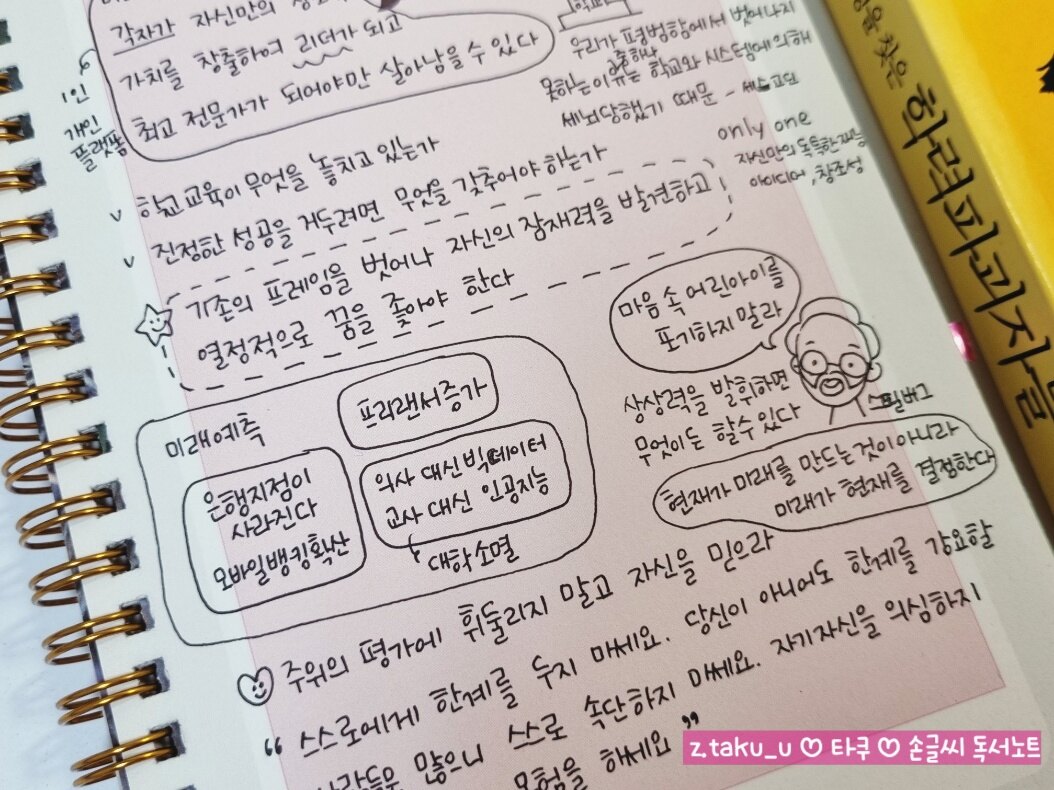 각자가 자신만의
가치를 창출하여 리더가 되고
최고 전문가가 되어야만 살아남을 수 있다
1인
개인
플랫폼
우리가 평범함에서 벗어나지
못하는 이유는 학교와 시스템에 의해
세뇌당했기 때문 - 세스 고딘
only one
자신만의 독특한 재능
아이디어, 창조성
v 학교 교육이 무엇을 놓치고 있는가
v 진정한 성공을 거두려면 무엇을 갖추어야 하는가
기존의 프레임을 벗어나 자신의 잠재력을 발견하고
열정적으로 꿈을 좇아야 한다
마음 속 어린아이를
포기하지 말라
상상력을 발휘하면
무엇이든 할 수 있다
스필버그
현재가 미래를 만드는 것이 아니라
미래가 현재를 결정한다
미래예측
프리랜서 증가
은행지점이
사라진다
모바일뱅킹확산
의사 대신 빅데이터
교사 대신 인공지능
대학소멸
주위의 평가에 휘둘리지 말고 자신을 믿으라
“ 스스로에게 한계를 두지 마세요. 당신이 아니어도 한계를 강요할
사람들은 많으니 스스로 속단하지 마세요. 자기자신을 의심하지
모험을 하세요 ”
찾은 학력파괴자들
z.taku_u ♡ 타쿠 ♡ 손글씨 독서노트